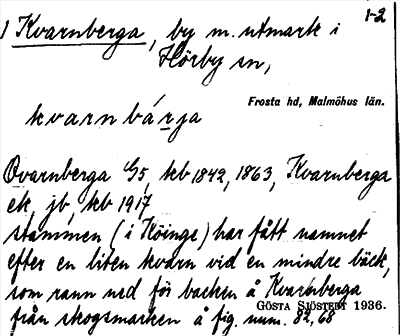 1-2
1 Kvarnberga, by m. utmark i
Hörby sn,
Frosta hd, Malmöhus län.
kvarnbárja
Qvarnberga G5, kb 1842, 1863, Kvarnberga
ek jb, kb 1917
stammen (i Köinge) har fått namnet
efter en liten kvarn vid en mindre bäck,
som rann ned för backen å Kvarnberga
GÖSTA SJÖSTEDT 1936.
från skogsmarken å fig. num. 82, 68